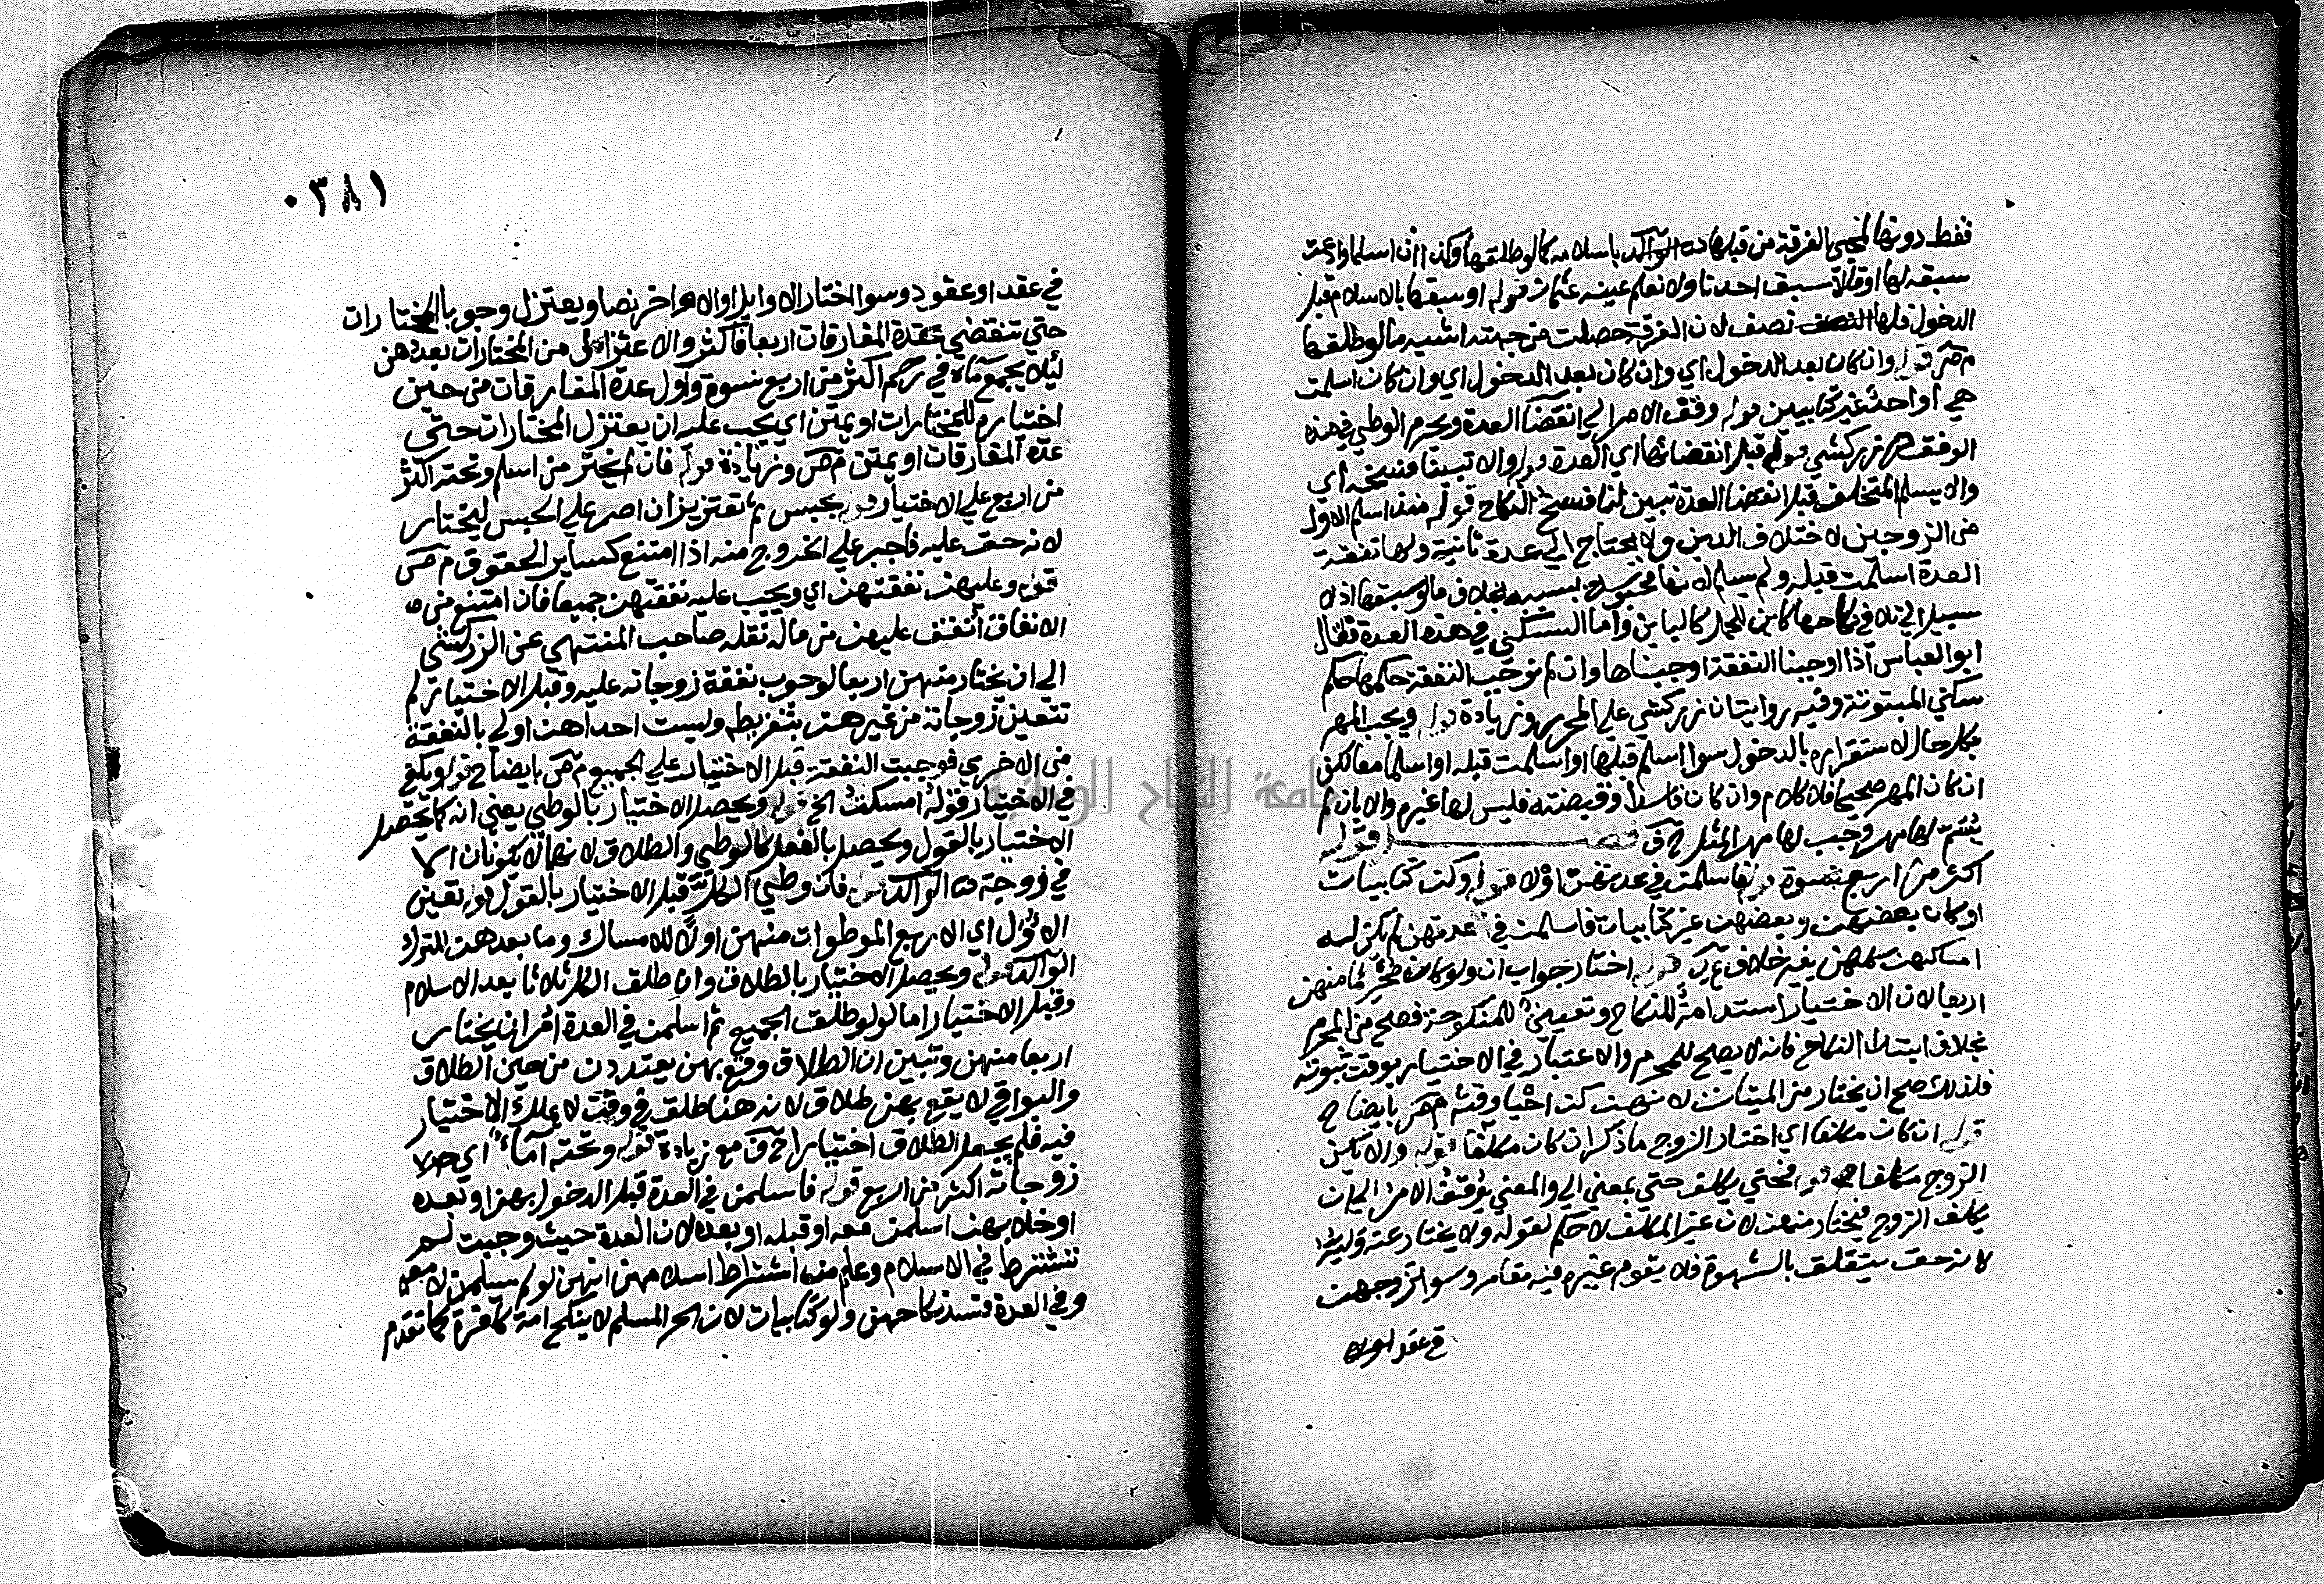 فقط دونها لمجيء الفرقة من قبلها باسلامه كما لو طلقها وكذا ان اسلما وادعت
سبقه لها او قالا سبق احدنا ولا نعلم عينه عثمان قوله او سبقها بالاسلام قبل
الدخول فلها نصف لان الفرقة حصلت من جهته اشبه ما لو طلقها
م ص قوله وان كان بعد الدخول اي وان كان بعد الدخول اي وان كان اسلمت
هي او احد غير كتابيين قوله وقف الامر الي انقضا العدة ويحرم الوطي في هذه
الوقف زركشي قوله قبل انقضائها اي العدة قوله والا تبينا فسخه اي
والا يسلم المتخلف قبل انقضا العدة تبين لنا فسخ النكاح قوله منذ اسلم الاول
من الزوجين لاختلاف الدين ولا يحتاج الي عدة ثانية ولها نفقة
العدة اسلمت قبله ولم يسلم لانها محبوسة بسببه بخلاف ما لو سبقها اذ لا
سبيل الي تلافي نكاحها كابن الحمار كالباين واما السكني في هذه العدة فقال
ابو العباس اذا اوجبنا النفقة اوجبناها وان لم نوجب النفقة حكمها حكم
سكني المبتوتة وفيه روايتان زركشي علي المحرر وزيادة قوله ويجب المهر
بكل حال لاستقراره بالدخول سوا اسلم قبلها او اسلمت قبله او اسلما معا لكن
ان كان المهر صحيحا فلا كلام وان كان فاسدا وقبضته فليس لها غيره والا بان لم
يسم لها مهر وجب لها مهر المثل ح ف فصل قوله
اكثر من اربع نسوة قوله فاسلمت في عدتهن اولا قوله او كن كتابيات
او كان بعضهن وبعضهن غير كتابيات فاسلمت في عدتهن لم يكن له
امساكهن كلهن بغير خلاف ع ك قوله اختار جواب ان ولو كان محرما منهن
اربعا لان الاختيار استدامة للنكاح وتعيين للمنكوحة فصح من المحرم
بخلاف ابتداء النكاح فانه لا يصح للمحرم والاعتبار في الاختيار بوقت ثبوته
فلذلك صح ان يختار من الميتات لانهن كن احيا وقته م ص بايضاح
قوله ان كان مكلفا اي اختار الزوج ما ذكر ان كان مكلفا قوله والا يكن
الزوج مكلفا قوله فحتي يكلف حتي بمعني الي والمعني يوقف الامر الي ان
يكلف الزوج فيختار منهن لان غير المكلف لا حكم لقوله ولا يختار عنه وليه
لانه حق يتعلق بالشهوة فلا يقوم غيره فيه مقامه وسوا تزوجهن
في عقد او
٠٣٨١
في عقد او عقود وسوا اختار الاوايل او الاواخر نصا ويعتزل وجوبا المختارات
حتي تنقضي عدة المفارقات اربعا فاكثر والا عتزل من المختارات بعدهن
ليلا يجمع ماءه في رحم اكثر من اربع نسوة واول عدة المفارقات من حين
اختياره للمختارات او يمتن اي يجب عليه ان يعتزل المختارات حتي
عدة المفارقات او يمتن م ص وزيادة قوله فان لم يختر من اسلم وتحته اكثر
من اربع علي الاختيار قوله بحبس ثم تعزير ان اصر علي الحبس ليختار
لانه حق عليه فاجبر علي الخروج منه اذا امتنع كساير الحقوق م ص
قوله وعليه نفقتهن اي ويجب عليه نفقتهن جميعا فان امتنع من
الانفاق انفق عليهن من ماله نقله صاحب المنتهي عن الزركشي
الي ان يختار منهن اربعا لوجوب نفقة زوجاته عليه وقبل الاختيار لم
تتعين زوجاته من غيرهن بتفريطه وليست احداهن اولي بالنفقة
من الاخري فوجبت النفقة قبل الاختيار علي الجميع م ص بايضاح قوله ويكفي
في الاختيار قوله امسكت الخ قوله ويحصل الاختيار بالوطي يعني انه كما يحصل
الاختيار بالقول ويحصل بالفعل كالوطي والطلاق لانهما لا يكونان الا
في زوجة قوله فان وطي الكل قبل الاختيار بالقول قوله تعين
الاول اي الاربع الموطوات منهن اولا للامساك وما بعدهن للترك
الوالد قوله ويحصل الاختيار بالطلاق وان طلق الكل ثلاثا بعد الاسلام
وقبل الاختيار اما لو طلق الجميع ثم اسلمن في العدة امر ان يختار
اربعا منهن وتبين ان الطلاق وقع بهن يعتددن من حين الطلاق
والبواقي لا يقع بهن طلاق لانه هنا طلق في وقت لا يملك الاختيار
فيه فلم يجعل الطلاق اختيارا ح ف مع زيادة قوله وتحته اماء اي حال
زوجاته اكثر من اربع قوله فاسلمن في العدة قبل الدخول بهن او بعده
او خلا بهن اسلمن معه او قبله او بعده لان العدة حيث وجبت لم
تشترط في الاسلام وعلم منه اشتراط اسلامهن انهن لو لم يسلمن لا معه
وفي العدة فسد نكاحهن ولو كتابيات لان الحر المسلم لا ينكح امة كافرة كما تقدم
جامعة النجاح الوطنية